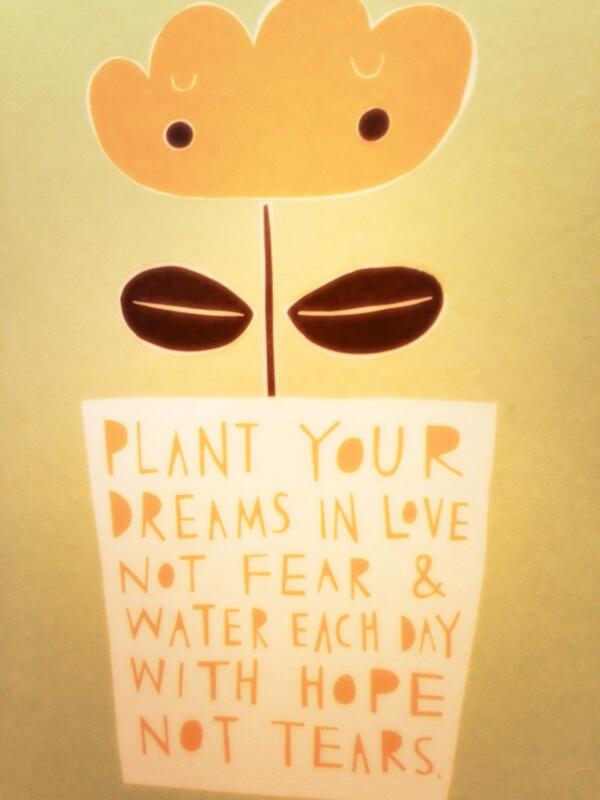 PLANT YOUR
DREAMS IN LOVE
NOT FEAR &
WATER EACH DAY
WITH HOPE
NOT TEARS.